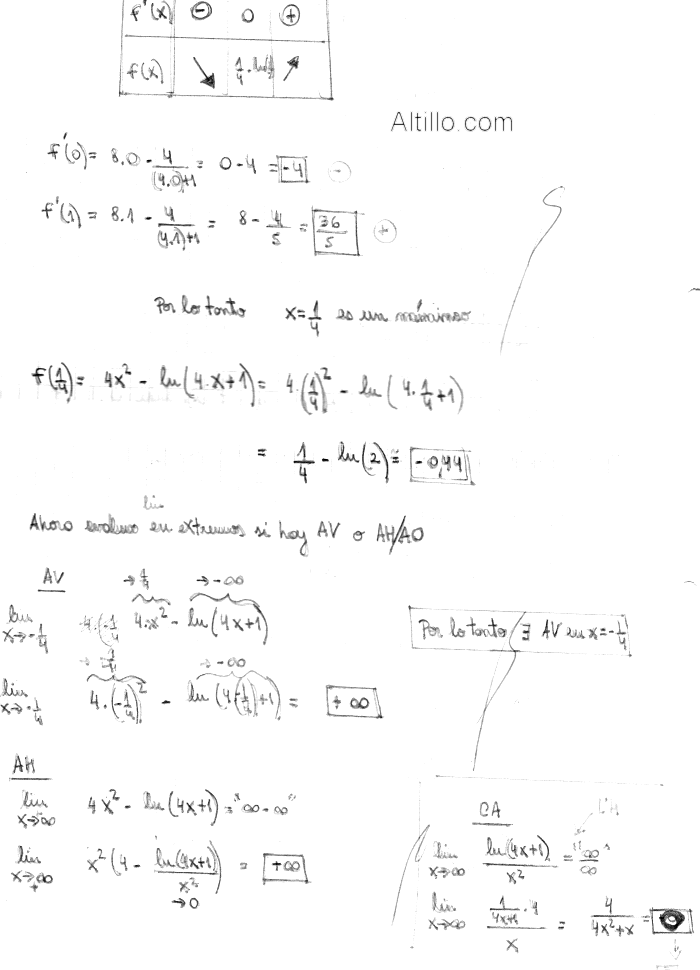 f'(x) ⊖ 0 ⊕
f(x) ↘ 1/4 - ln(2) ↗
Altillo.com
f'(0) = 8.0 - 4/((4.0)+1) = 0 - 4 = -4 -
f'(1) = 8.1 - 4/((4.1)+1) = 8 - 4/5 = 36/5 +
Por lo tanto x = 1/4 es un
f(1/4) = 4x² - ln(4.x+1) = 4.(1/4)² - ln(4.1/4+1)
= 1/4 - ln(2) ≅ -0,44
lim
Ahora evaluo en extremos si hay AV o AH/AO
AV → 1/4 → -∞
lim x→-1/4 4.x² - ln(4x+1)
Por lo tanto ∃ AV en x=-1/4
→ 1/4 → -∞
lim x→-1/4 4.(-1/4)² - ln(4(-1/4)+1) = +∞
AH
lim x→∞ 4x² - ln(4x+1) = "∞-∞"
lim x→+∞ x²(4 - ln(4x+1)/x²) = +∞
→0
CA L'H
lim x→∞ ln(4x+1)/x² = "∞/∞"
lim x→∞ (1/(4x+1) . 4)/x = 4/(4x²+x) = 0